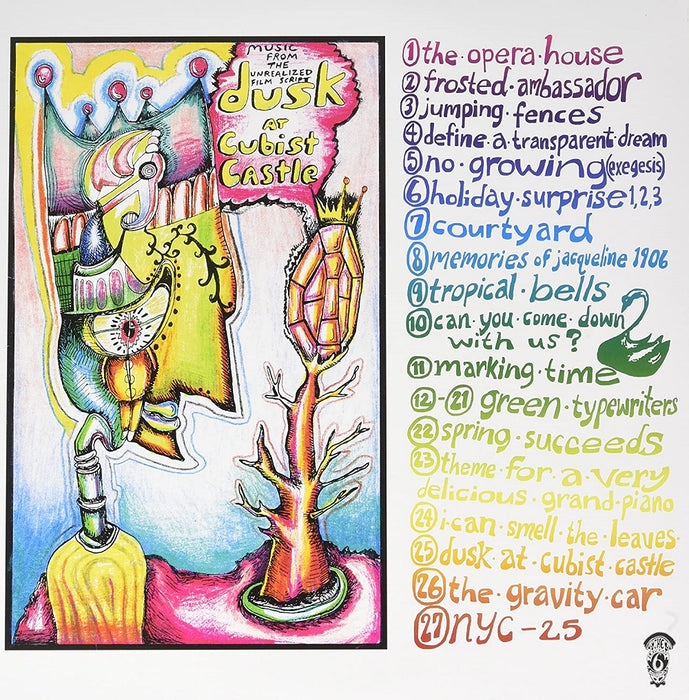 music
from
the
unrealized
film script
dusk
at
cubist
castle
1 the·opera·house
2 frosted·ambassador
3 jumping·fences
4 define·a·transparent·dream
5 no·growing (exegesis)
6 holiday·surprise 1,2,3
7 courtyard
8 memories of jacqueline 1906
9 tropical·bells
10 can·you·come·down
with us?
11 marking·time
12-21 green·typewriters
22 spring·succeeds
23 theme·for·a·very
delicious·grand·piano
24 i·can·smell·the·leaves·
25 dusk·at·cubist·castle
26 the·gravity·car
27 NYC-25
6